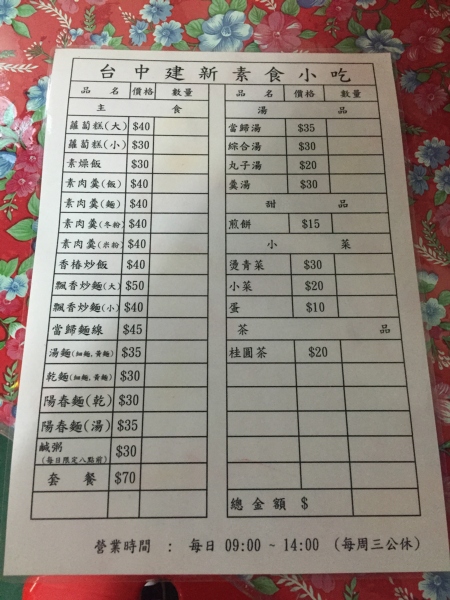 台中建新素食小吃
品 名 價格 數量
主 食
蘿蔔糕(大) $40
蘿蔔糕(小) $30
素燥飯 $30
素肉羹(飯) $40
素肉羹(麵) $40
素肉羹(冬粉) $40
素肉羹(米粉) $40
香椿炒飯 $40
飄香炒麵(大) $50
飄香炒麵(小) $40
當歸麵線 $45
湯麵(細麵,黃麵) $35
乾麵(細麵,黃麵) $30
陽春麵(乾) $30
陽春麵(湯) $35
鹹粥 $30
(每日限定八點前)
套 餐 $70
品 名 價格 數量
湯 品
當歸湯 $35
綜合湯 $30
丸子湯 $20
羹湯 $30
甜 品
煎餅 $15
小 菜
燙青菜 $30
小菜 $20
蛋 $10
茶 品
桂圓茶 $20
總金額 $
營業時間 : 每日 09:00 ~ 14:00 (每周三公休)